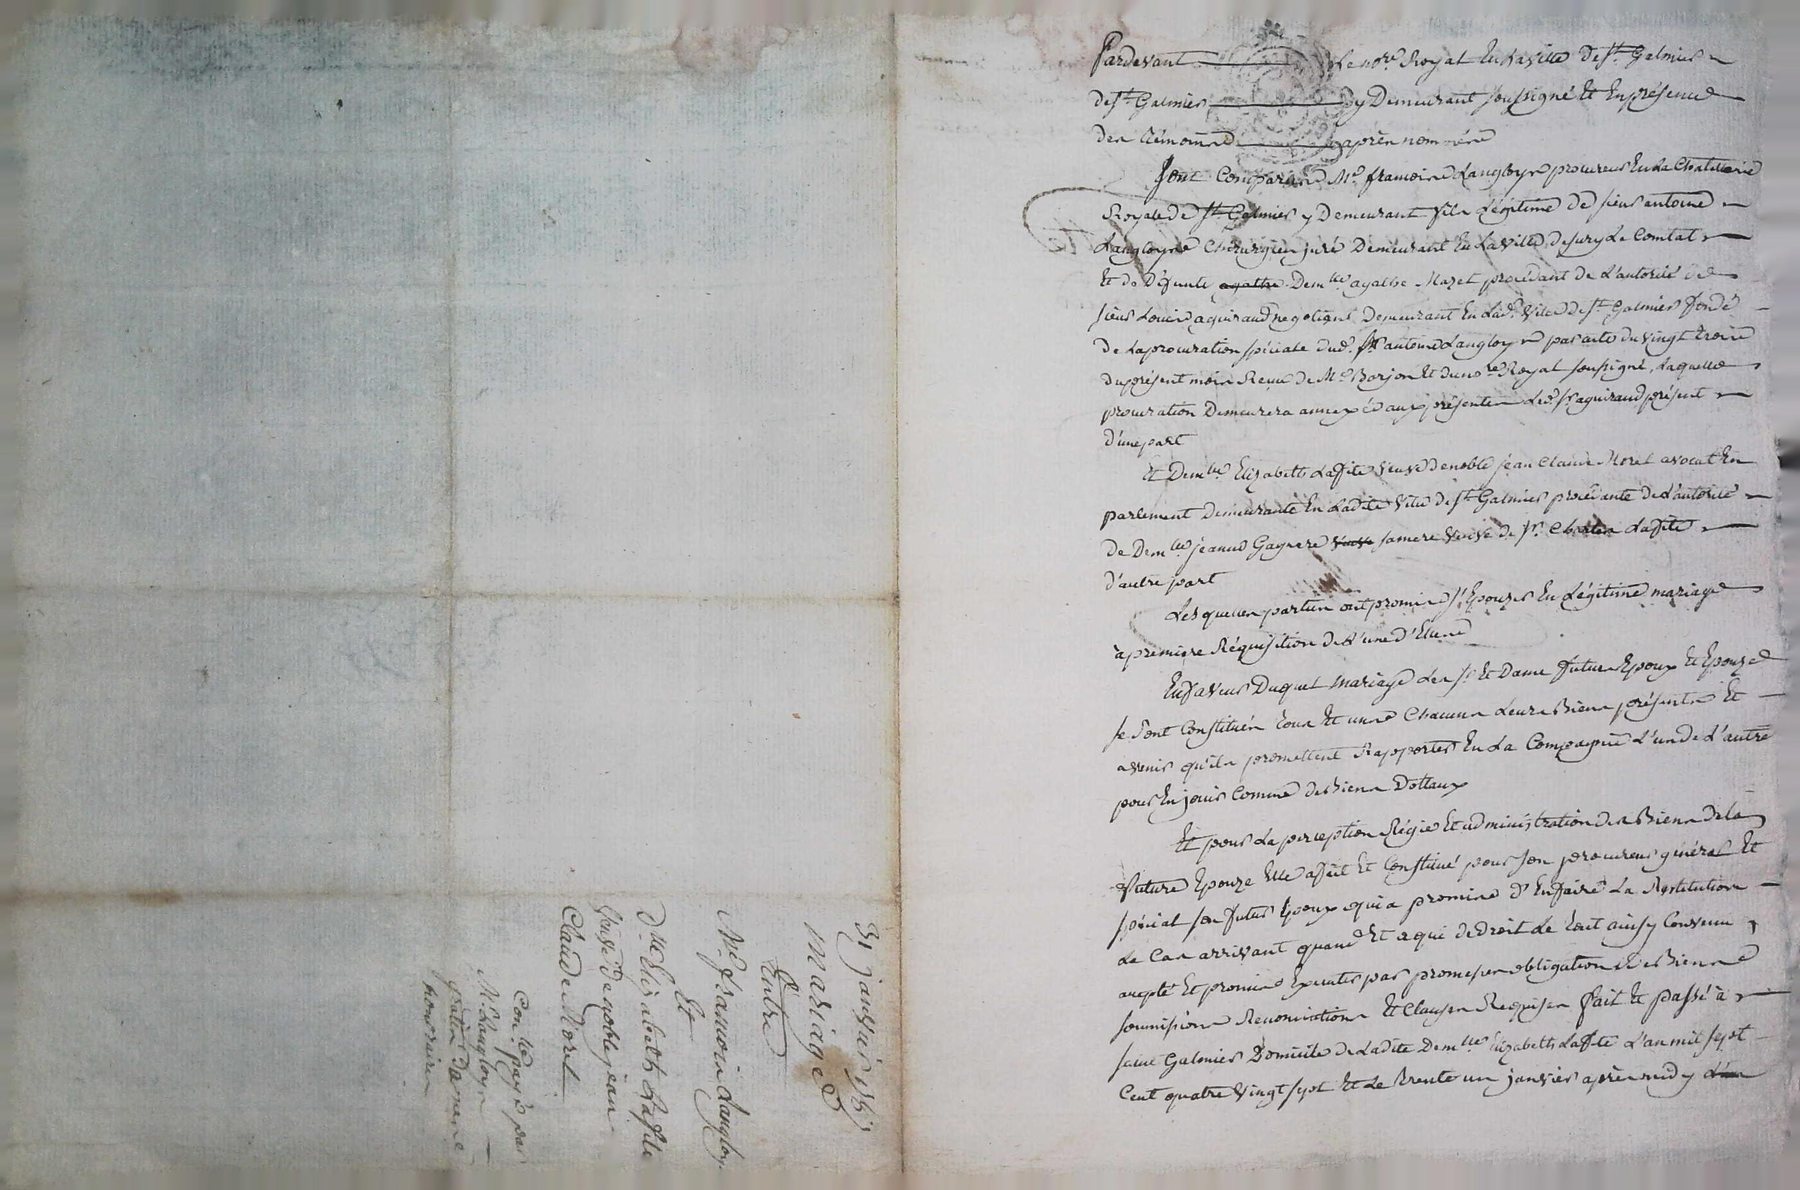 Pardevant Le no.re Royal En La ville de St. Galmier
de St. Galmier y Demeurant soussigné Et En présence
des témoins après nommés
Sont Comparus Me. françois Langloys procureur En La Chatellenie
Royale de St. Galmier y Demeurant fils Légitime de sieur antoine
Langloys Chirurgien juré Demeurant En La ville de sury Le Comtat
Et de défunte agathe Dem.lle agathe Mazet procédant de L'autorité de
sieur Louis aguiraud negotiant Demeurant En Lad. ville de St. Galmier fondé
de La procuration spéciale dud. sr. antoine Langloys par acte du vingt trois
du présent mois Reçue de Me. Barjon Et du no.re Royal soussigné, Laquelle
procuration Demeurera annexée aux présentes Led. sr. aguiraud présent
d'une part
Et Dem.lle Elizabeth Laffite veuve de noble jean Claude Morel avocat En
parlement Demeurante En Ladite ville de St. Galmier procédante de L'autorité
de Dem.lle jeanne Gagnere veuve sa mere veuve de sr. Charles Laffite
d'autre part
Lesquelles parties ont promis s'Epouzer En Légitime mariage
a premiere Réquisition de L'une d'Elles
En faveur Duquel mariage Les sr. Et Dame futurs Epoux Et Epouze
se sont Constitués tous Et uns Chacuns Leurs Biens présents Et
avenir qu'ils promettent Rapporter En La Compagnie L'un de L'autre
pour En jouir Comme de Biens Dotaux
Et pour La perception Régie Et administration des Biens de La
future Epouze Elle a fait Et Constitué pour son procureur général Et
spécial son futur Epoux qui a promis d'En faire La Restitution
Le Cas arrivant quand Et a qui de droit Le tout ainsy Convenu
accepté Et promis Executer par promesses obligation de Biens
soumissions Renonciations Et Clauses Requises fait Et passé à
saint Galmier Domicile de Ladite Dem.lle Elizabeth Laffite L'an mil sept
Cent quatre vingt sept Et Le trente un janvier après midy
31 janvier 1787
mariage
Entre
Me. françois Langloys
Et
D.lle Elizabeth Laffite
veuve De noble jean
Claude Morel
Con.lle payé par
Me. Langloys
gratis Da mene
honoraires